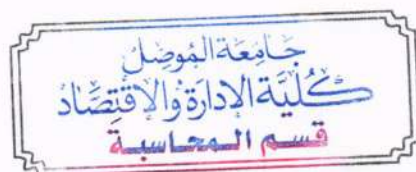 جَامِعَة المُوصِل
كُلِّيَّة الإدَارَة وَالاقْتِصَاد
قسم المحاسبة